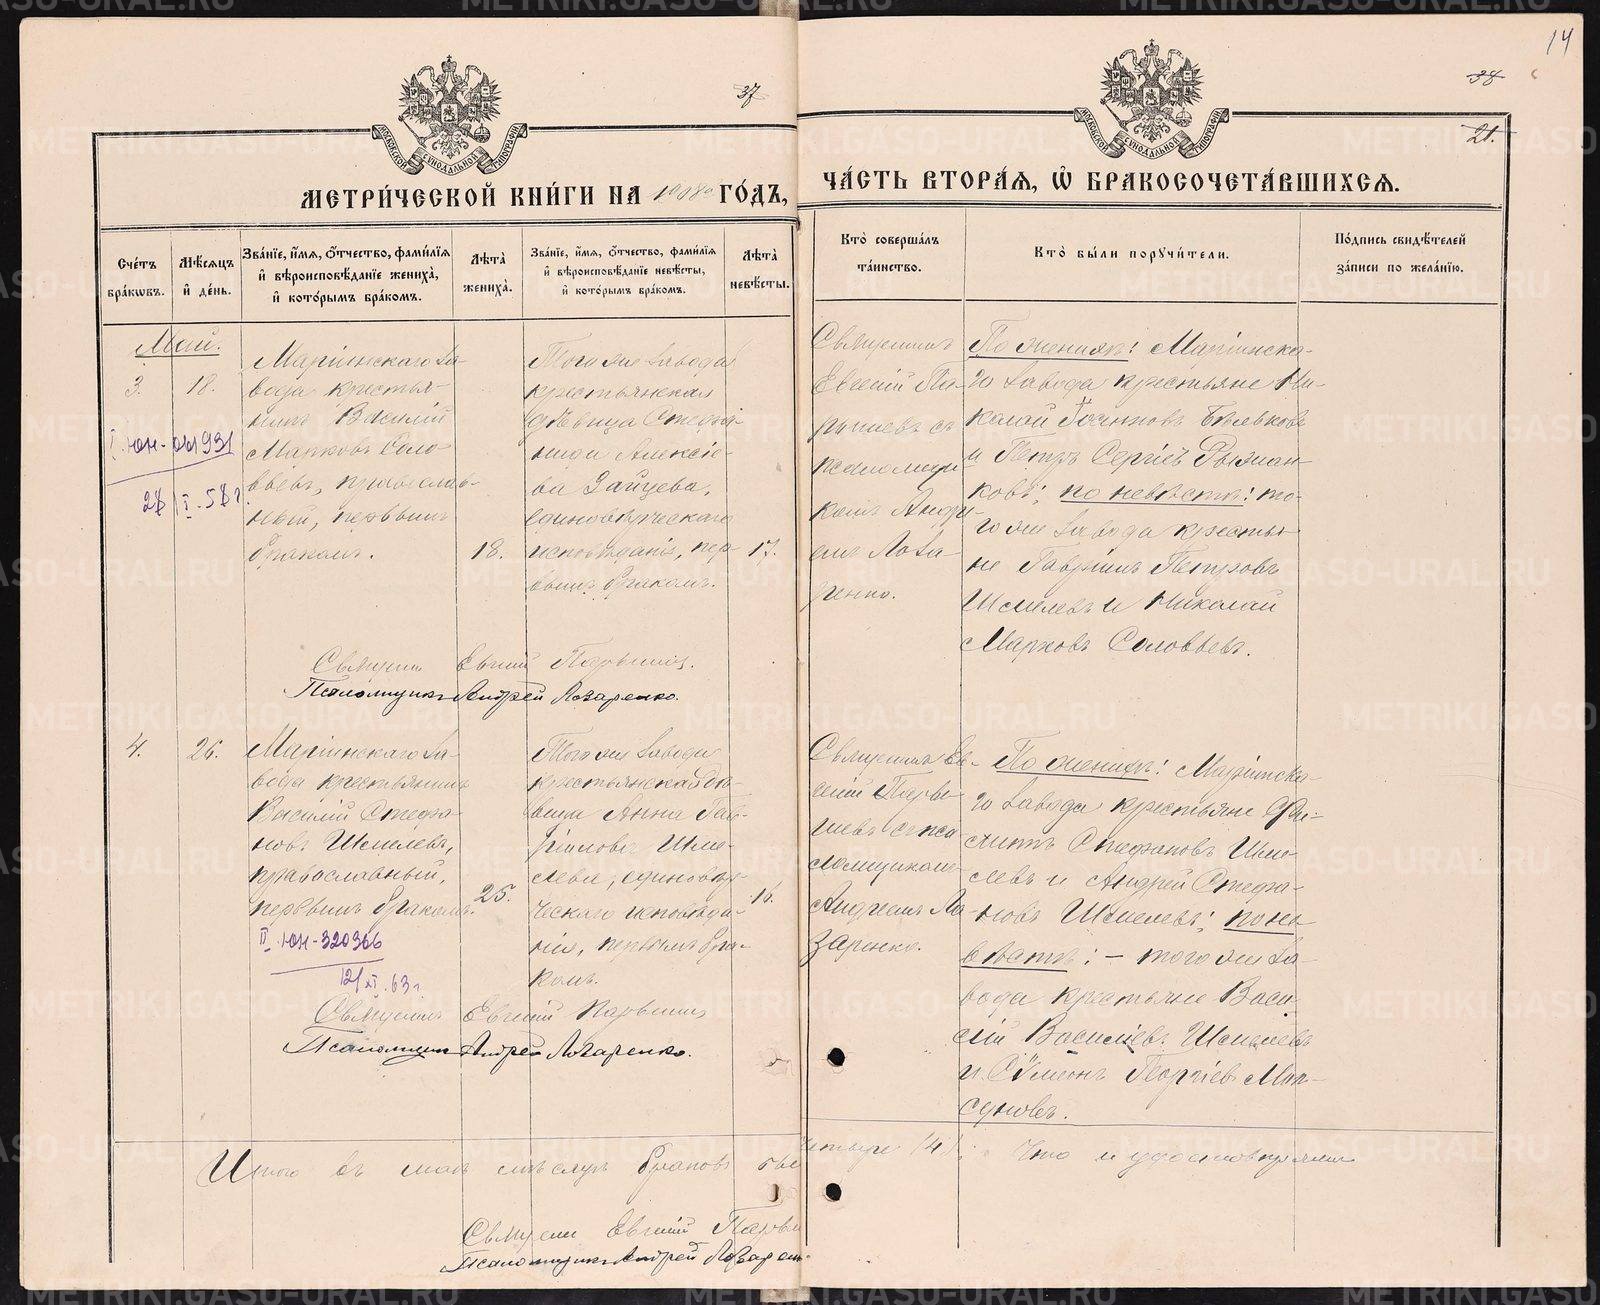 14
37
38
21.
МЕТРИ́ЧЕСКОЙ КНИ́ГИ НА 1908 ГО́ДЪ,
ЧА́СТЬ ВТОРА́Я, Ѡ БРАКОСОЧЕТА́ВШИХСЯ.
Сче́тъ
бра́кωвъ.
Мѣ́сяцъ
и҆ де́нь.
Зва́нїе, и҆́мя, ѻ҆́тчество, фами́лїя
и҆ вѣроисповѣ́данїе жениха̀,
и҆ кото́рымъ бра́комъ.
Лѣ́та
жениха̀.
Зва́нїе, и҆́мя, ѻ҆́тчество, фами́лїя
и҆ вѣроисповѣ́данїе невѣ́сты,
и҆ кото́рымъ бра́комъ.
Лѣ́та
невѣ́сты.
Кто̀ соверша́лъ
та́инство.
Кто̀ бы́ли порꙋчи́тели.
По́дпись свидѣ́телей
за́писи по жела́нїю.
Май.
3.
18.
Маріинскаго за-
вода крестья-
нинъ Василій
Марковъ Соло-
вьевъ, православ-
ный, первымъ
бракомъ.
18.
Того же завода
крестьянская
дѣвица Стефа-
нида Алексіе-
ва Зайцева,
единовѣрческаго
исповѣданія, пер-
вымъ бракомъ.
17.
Священникъ
Евгеній
съ
псаломщи-
комъ Андре-
емъ Лаза-
ренко.
По женихѣ: Маріинска-
го завода крестьяне Ни-
колай Бѣльковъ
и Петръ Сергіевъ
ковъ; по невѣстѣ: то-
го же завода крестья-
не Гавріилъ Петровъ
Шмелевъ и Николай
Марковъ Соловьевъ.
I ЮН-
Священникъ Евгеній
Псаломщикъ Андрей Лазаренко.
4.
26.
Маріинскаго за-
вода крестьянинъ
Василій Стефа-
новъ Шмелевъ,
православный,
первымъ бракомъ.
25.
II ЮН-320366
12/XI.63г
Того же завода
крестьянская дѣ-
вица Анна Гав-
ріилова Шме-
лева, единовѣр-
ческаго исповѣда-
нія, первымъ бра-
комъ.
16.
Священникъ Ев-
геній
съ пса-
ломщикомъ
Андреемъ Ла-
заренко.
По женихѣ: Маріинска-
го завода крестьяне
Стефановъ Шме-
левъ и Андрей Стефа-
новъ Шмелевъ; по не-
вѣстѣ: – того же за-
вода крестьяне Васи-
лій Васильевъ Шмелевъ
и Сѵмеонъ Георгіевъ Мак-
суновъ.
Священникъ Евгеній
Псаломщикъ Андрей Лазаренко.
Итого въ маѣ мѣсяцѣ браковъ
четыре (4). Что и удостовѣряемъ
Священникъ Евгеній
Псаломщикъ Андрей Лазарен
METRIKI.GASO-URAL.RU